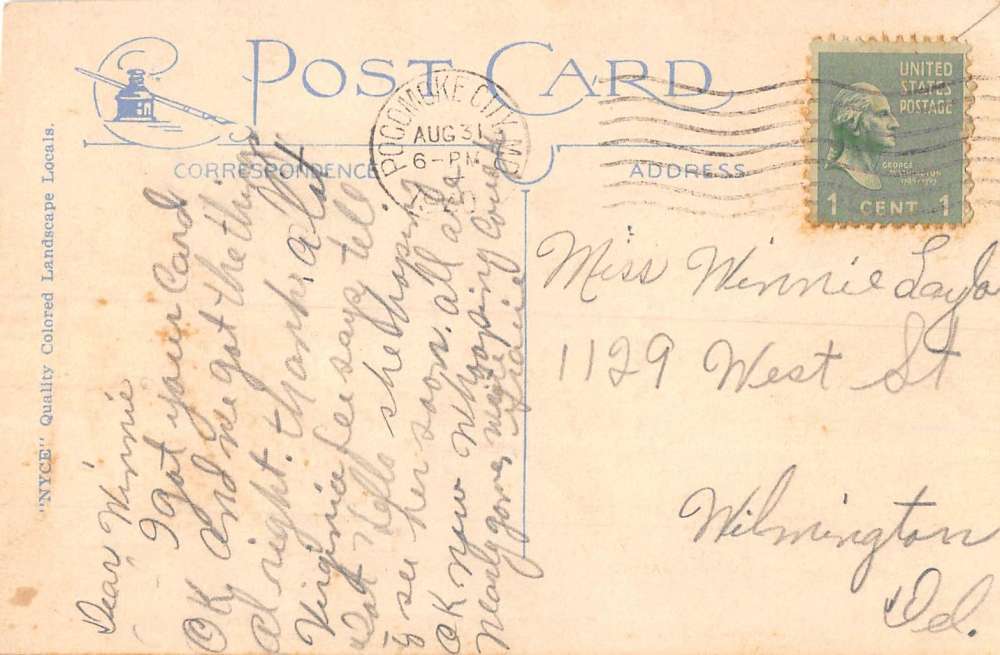 POST CARD
CORRESPONDENCE
ADDRESS
"NYCE" Quality Colored Landscape Locals.
POCOMOKE CITY, MD.
AUG 31
6-PM
UNITED
STATES
POSTAGE
GEORGE
WASHINGTON
1 CENT 1
Dear Winnie
I got your Card
OK and we got the things
al right. thanks a lot
Virginia Lee says tell
Dot hello she hoping
to see her soon. all are
OK now whooping Cough
nearly gone,
Miss Winnie Taylo
1129 West St
Wilmington
Del.